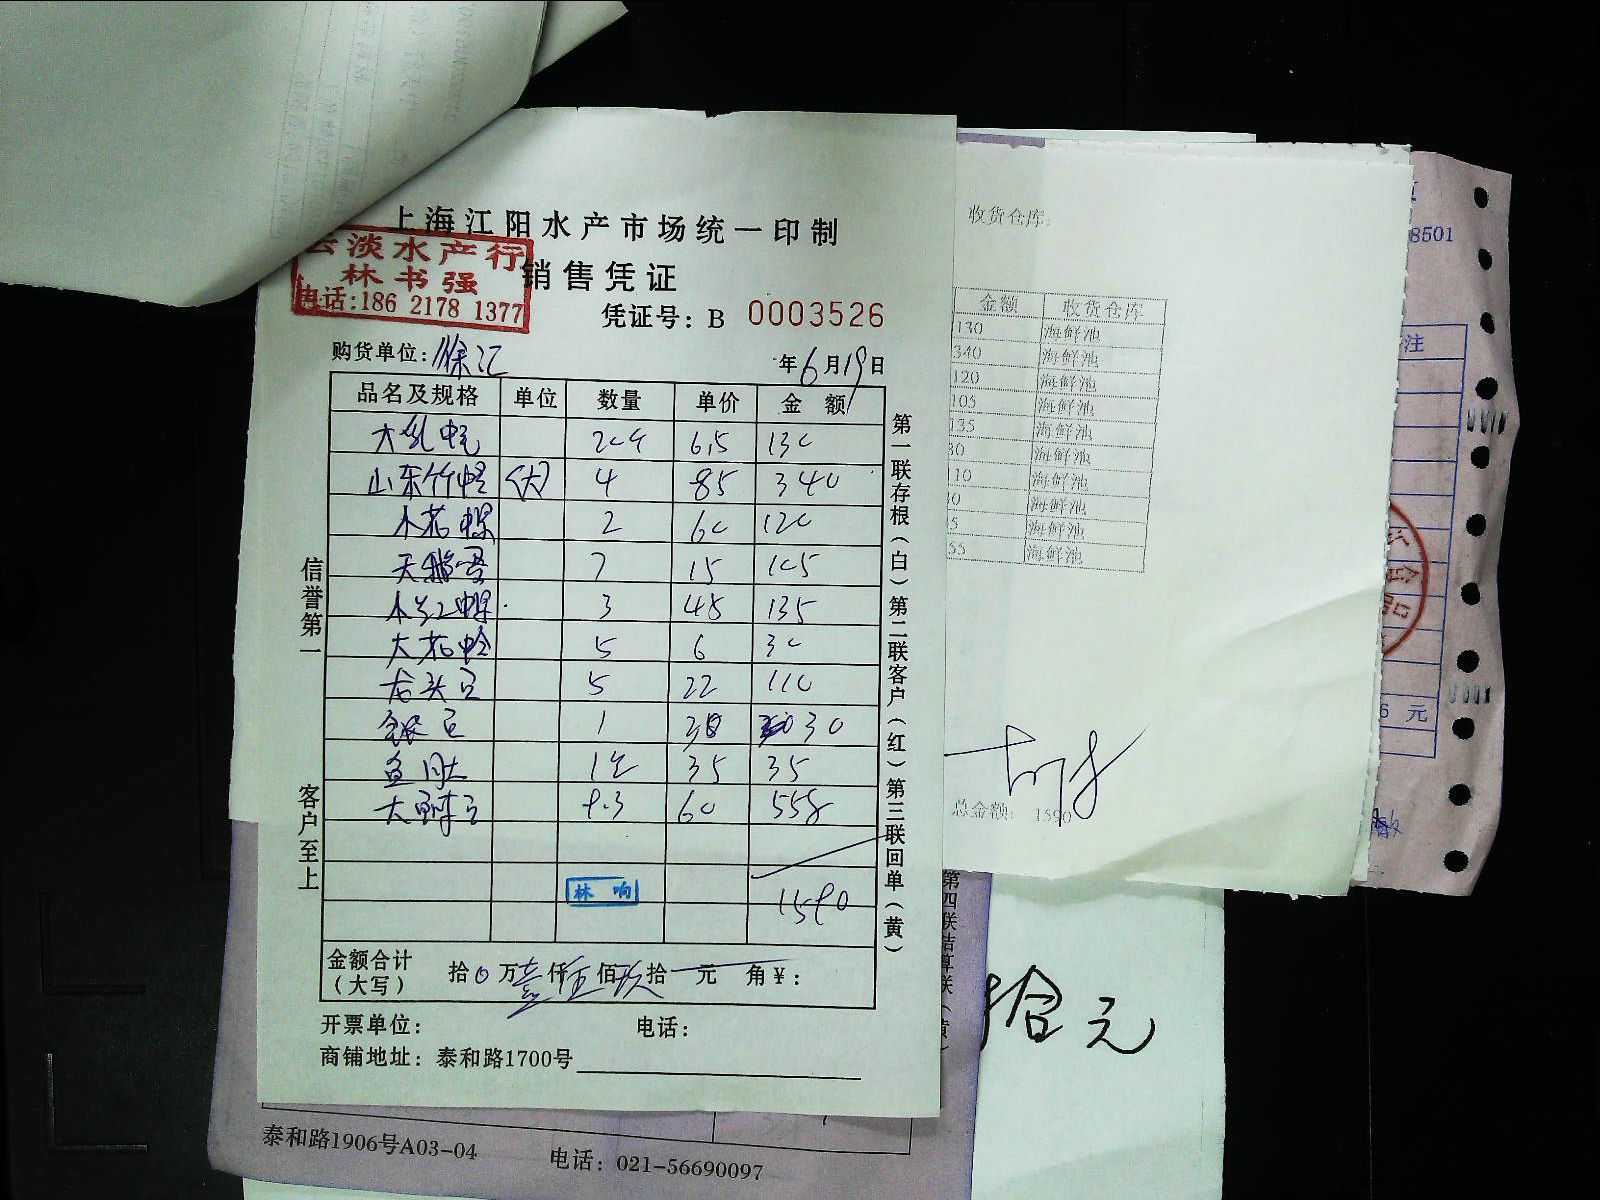 上海江阳水产市场统一印制
云淡水产行
林书强
电话:186 2178 1377
销售凭证
凭证号: B 0003526
购货单位: 徐汇 年6月19日
品名及规格 单位 数量 单价 金额
大乳蛏 20斤 6.5 130
山东竹蛏 (大) 4 85 340
小花螺 2 60 120
天鹅蛋 7 15 105
小红螺 3 45 135
大花蛤 5 6 30
龙头豆 5 22 110
1 30 30
鱼肚 1包 35 35
9.3 60 558
林响
1590
金额合计(大写) 拾0万壹仟伍佰玖拾一元 角¥:
开票单位: 电话:
商铺地址: 泰和路1700号
信誉第一
客户至上
第一联存根(白)第二联客户(红)第三联回单(黄)
收货仓库:
金额 收货仓库
130 海鲜池
340 海鲜池
120 海鲜池
105 海鲜池
135 海鲜池
30 海鲜池
110 海鲜池
海鲜池
海鲜池
海鲜池
总金额: 1590
8501
注
6 元
第四联结算联(黄)
拾元
泰和路1906号A03-04
电话: 021-56690097